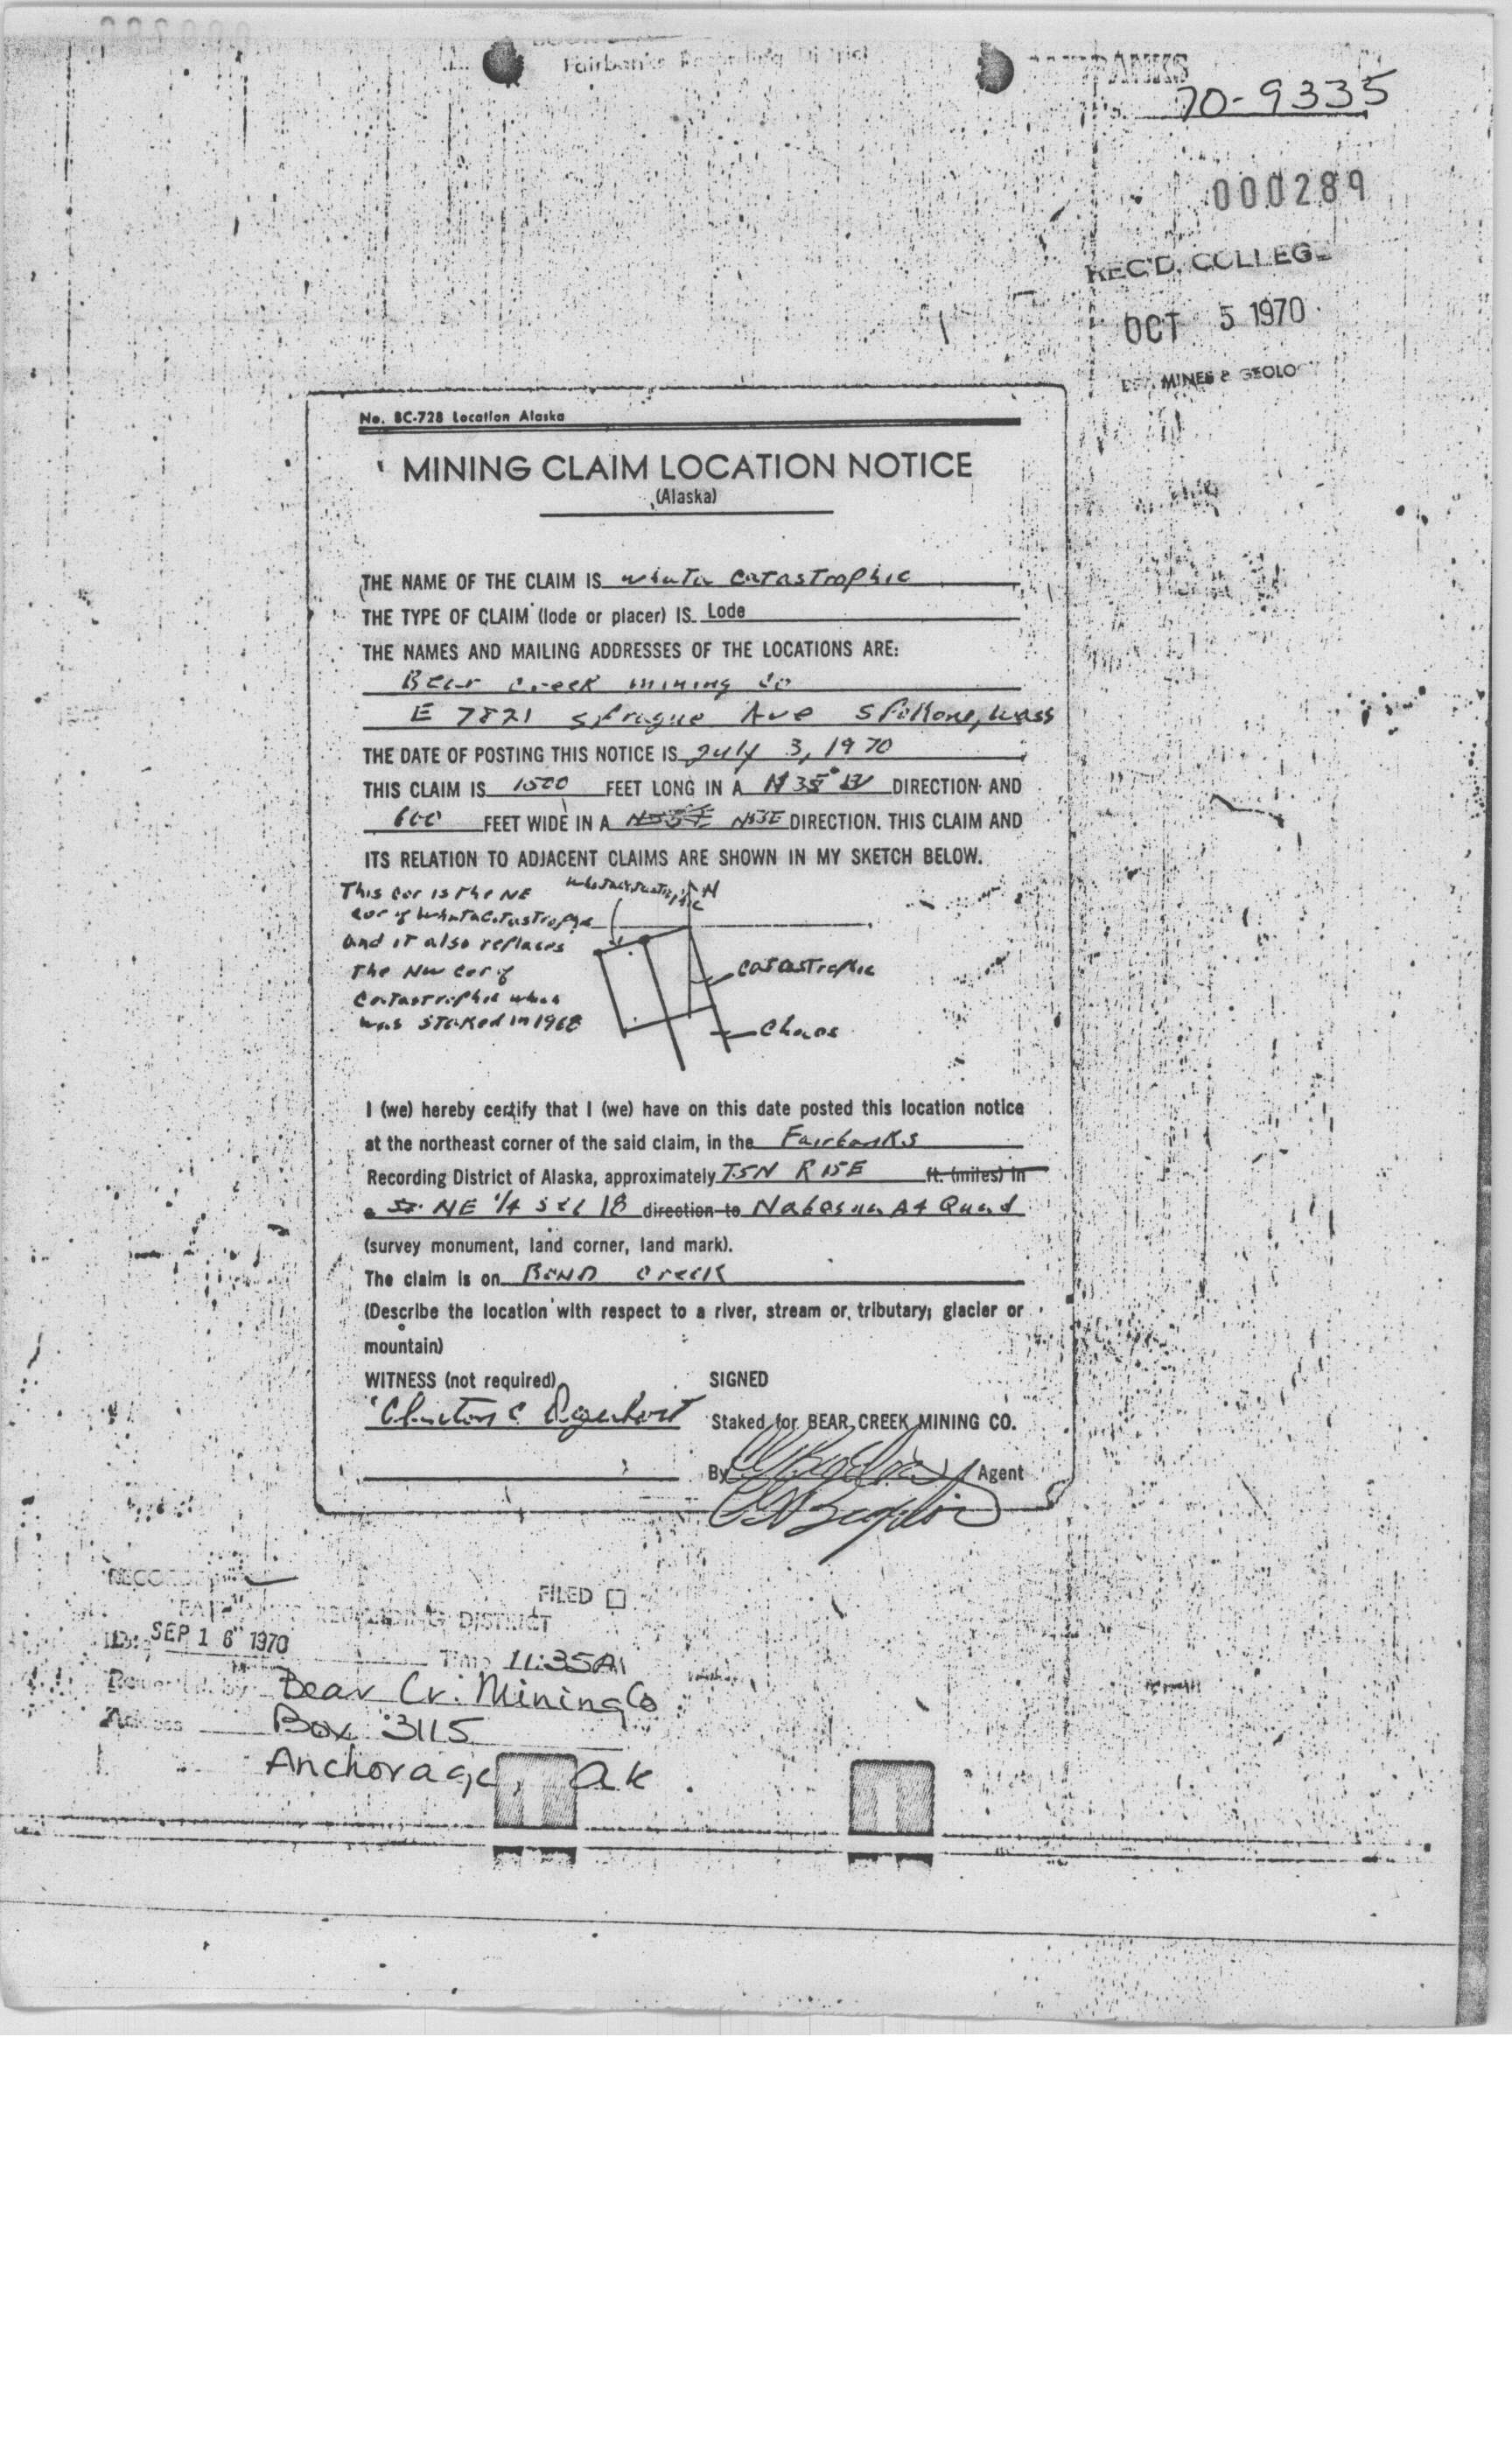 Fairbanks Recording District
FAIRBANKS
70-9335
000289
REC'D. COLLEGE
OCT 5 1970
MINES & GEOLOGY
No. BC-728 Location Alaska
MINING CLAIM LOCATION NOTICE
(Alaska)
THE NAME OF THE CLAIM IS whata catastrophic
THE TYPE OF CLAIM (lode or placer) IS Lode
THE NAMES AND MAILING ADDRESSES OF THE LOCATIONS ARE:
Bear Creek mining Co
E 7821 Sprague Ave Spokone, Wash
THE DATE OF POSTING THIS NOTICE IS July 3, 1970
THIS CLAIM IS 1500 FEET LONG IN A N 35° W DIRECTION AND
600 FEET WIDE IN A DIRECTION. THIS CLAIM AND
ITS RELATION TO ADJACENT CLAIMS ARE SHOWN IN MY SKETCH BELOW.
This cor is the NE
cor of whatacatastrophe
and it also replaces
The NW cor of
Catastrophic when
was staked in 1968
N
catastrophic
Chaos
I (we) hereby certify that I (we) have on this date posted this location notice
at the northeast corner of the said claim, in the Fairbanks
Recording District of Alaska, approximately T5N R 15E ft. (miles) in
a NE 1/4 Sec 18 direction to Nabesna A4 Quad
(survey monument, land corner, land mark).
The claim is on Bond Creek
(Describe the location with respect to a river, stream or tributary; glacier or
mountain)
WITNESS (not required) SIGNED
Clinton C Staked for BEAR CREEK MINING CO.
By Agent
RECORDED FILED
FAIRBANKS RECORDING DISTRICT
Date SEP 16 1970 Time 11:35 AM
Requested by Bear Cr. Mining Co
Address Box 3115
Anchorage, ak.